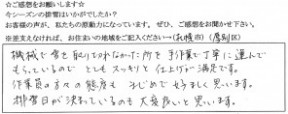 ☆ご感想をお願いします☆
今シーズンの排雪はいかがでしたか?
お客様の声が、私たちの原動力になっています。ぜひ、ご感想をお聞かせ下さい。
※差支えなければ、お住まいの地域をご記入ください→(札幌市)(厚別区)
機械で雪を取りきれなかった所を手作業で丁寧に運んで
もらっているので とてもスッキリと仕上がり満足です。
作業員の方々の態度も まじめで好ましく思います。
排雪日が決まっているのも大変良いと思います。